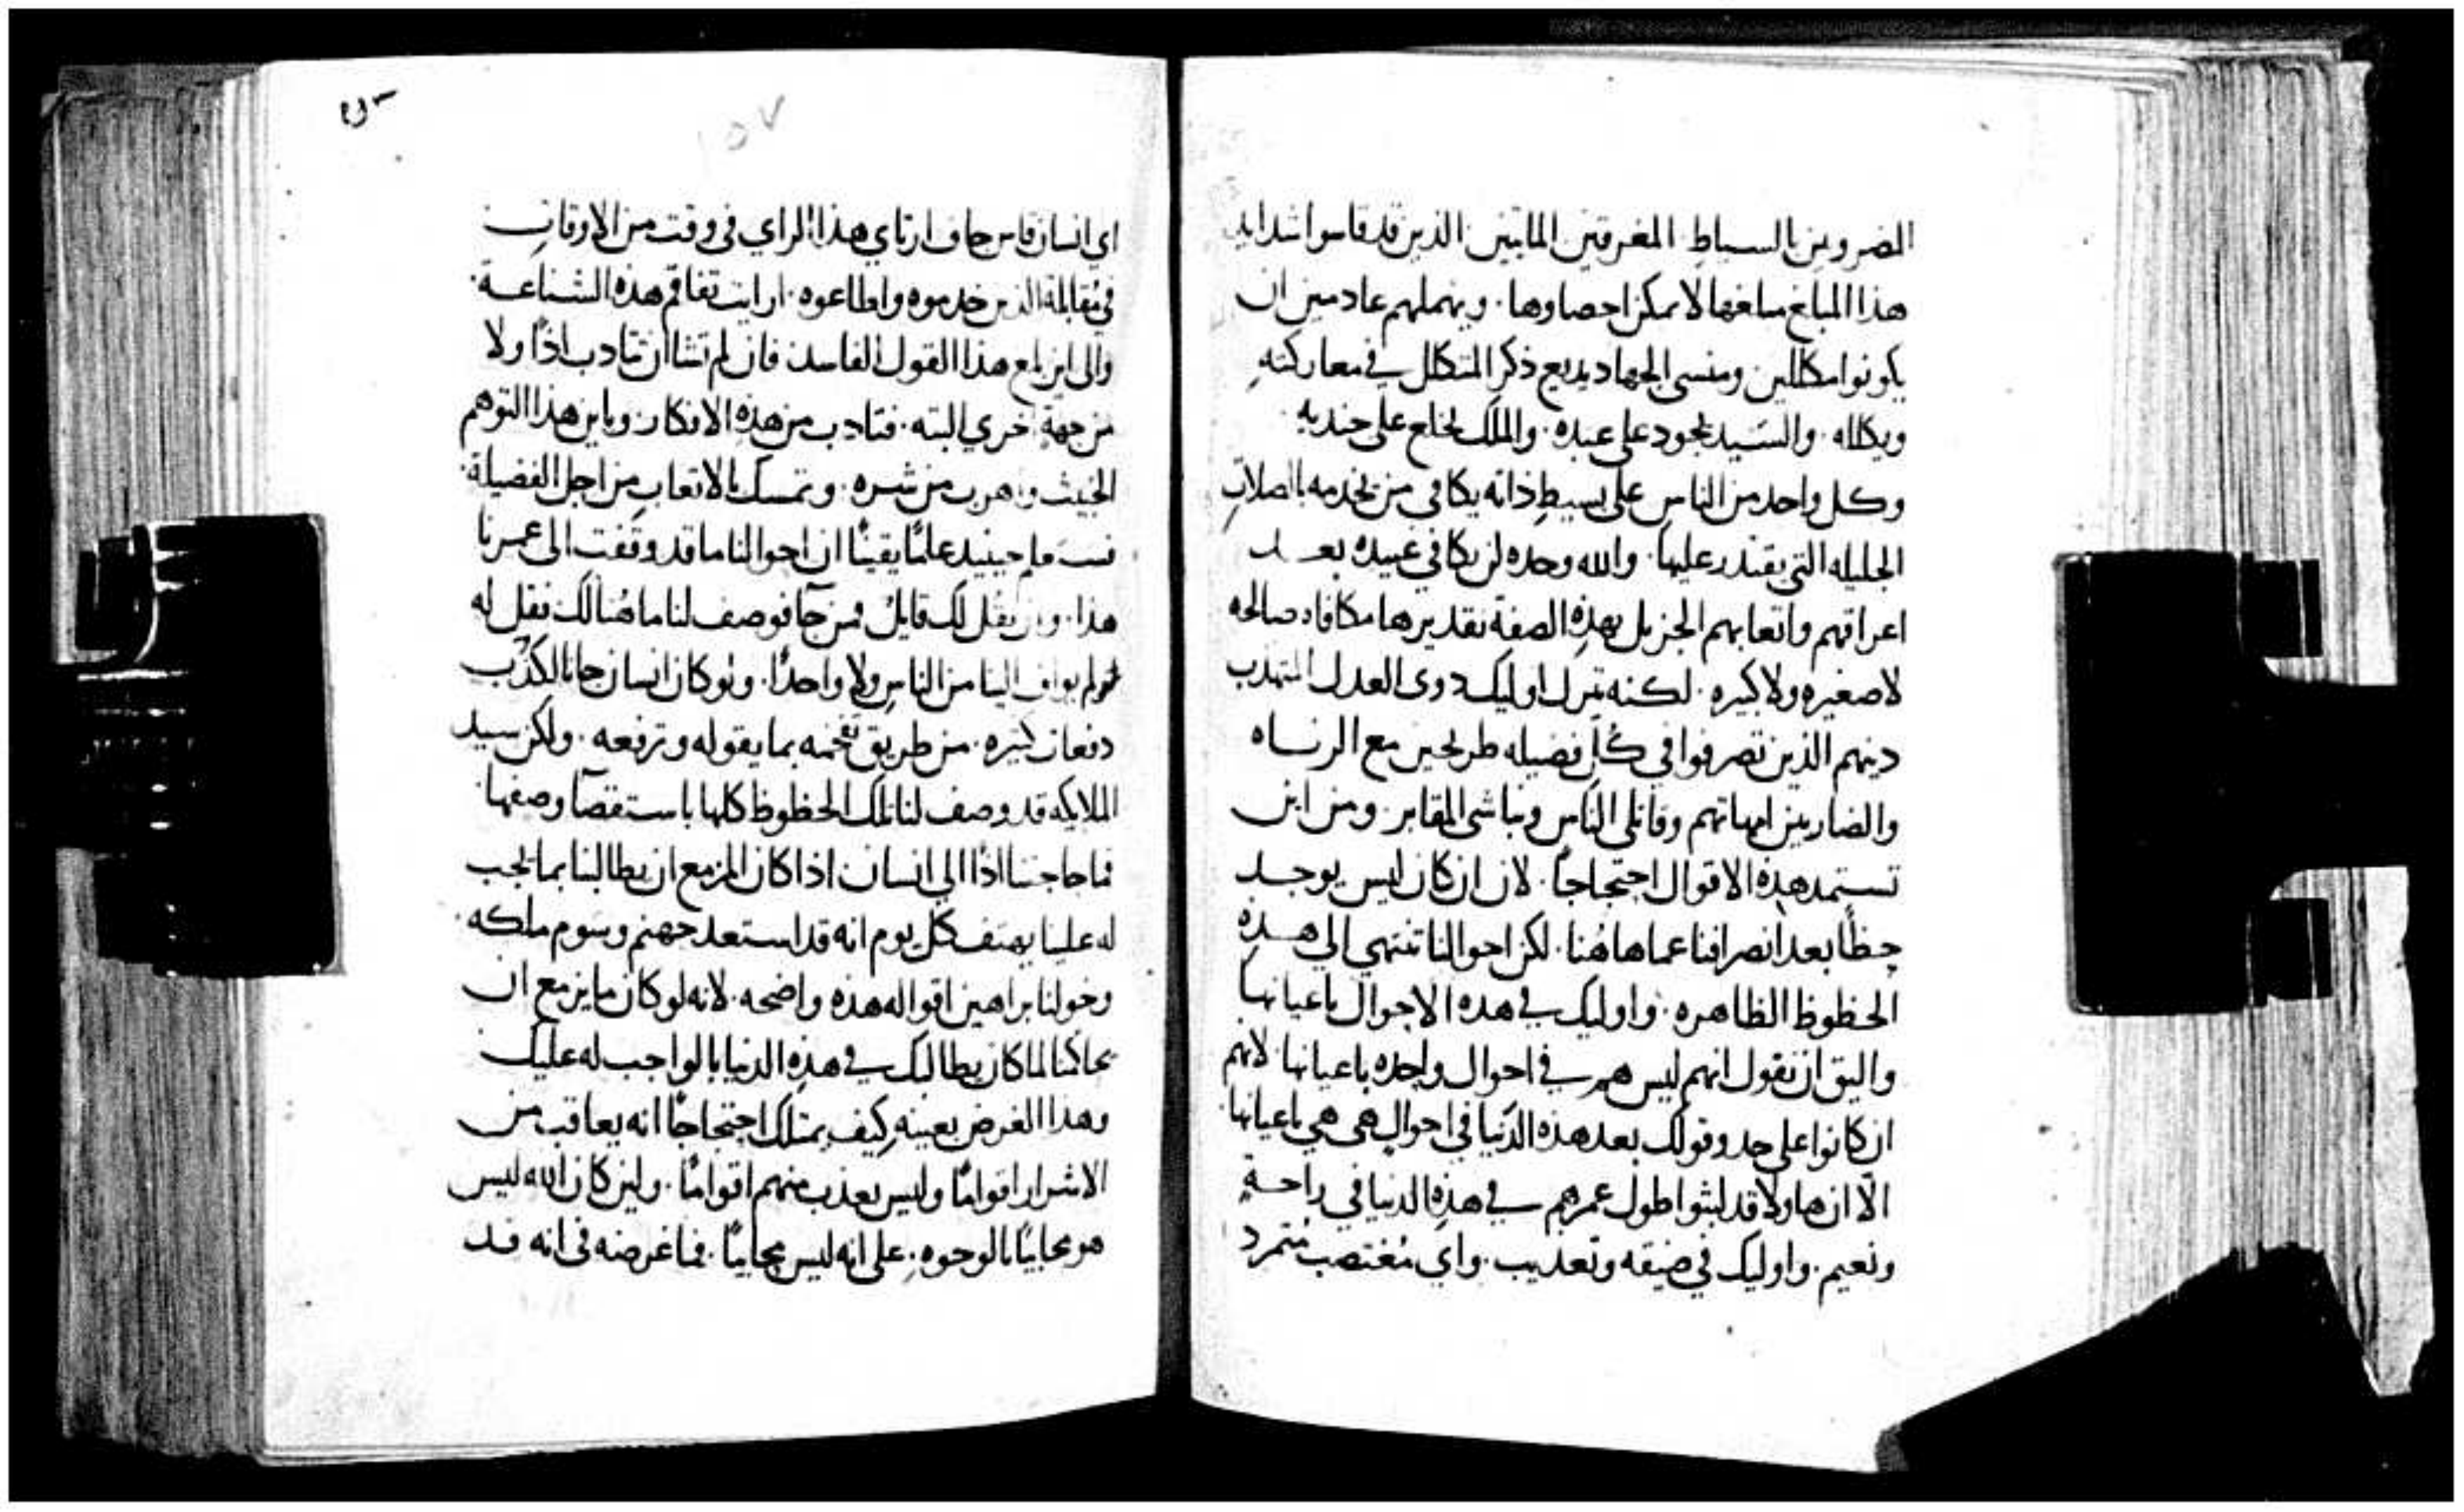 المضروبين بالسياط المغرقين المايتين الذين قد قاسوا شدايد
هذا المبلغ مبلغها لا يمكن احصاوها . ويهملهم عادمين ان
يكونوا مكللين ومنسى الجهاد يديع ذكر المتكلل في معاركته
ويكلله . والسيد يجود على عبده . والملك يخلع على جنديه
وكل واحد من الناس على بسيط ذاته يكافي من يخدمه بالصلات
الجليله التي يقتدر عليها . والله وحده لن يكافي عبيده بعد
اعراقهم واتعابهم الجزيل بهذه الصفة تقديرها مكافاه صالحه
لا صغيره ولا كبيره . لكنه ترك اوليك دوى العدل المتهذب
دينهم الذين تصرفوا في كل فضيله طريحين مع الزناه
والضاربين امهاتهم وقاتلي الناس ونباشى المقابر . ومن اين
تستمد هذه الاقوال احتجاجا . لان ان كان ليس يوجد
حظا بعد انصرافنا عما هاهنا . لكن احوالنا تنتهي الي هذه
الحظوظ الظاهره . واوليك في هده الاحوال باعيانها
واليق ان نقول انهم ليس هم في احوال واحده باعيانها لانهم
ان كانوا على حد وقولك بعد هذه الدنيا في احوال هي هي باعيانها
الّا ان هاولا قد لبثوا طول عمرهم في هذه الدنيا في راحة
ونعيم . واوليك في ضيقه وتعديب . واي مغتصب متمرد
١٥٧
اي انسان قاس جاف ارتاي هذا الراي في وقت من الاوقات
في مقابلة الذين خدموه واطاعوه . ارايت تفاقم هذه الشناعة .
والى اين بلغ هذا القول الفاسد فان لم تشا ان تتادب اذًا ولا
من جهة اخري البته . فتادب من هذه الافكار وباين هذا التوهم
الخبيث واهرب من شره . وتمسك بالاتعاب من اجل الفضيلة .
فستعلم حينيد علمًا يقينًا ان احوالنا ما قد وقفت الى عمرنا
هذا . وان يقل لك قايل فمن جآ فوصف لنا ما هنالك فقل له
لم يواف الينا من الناس ولا واحدًا . ولو كان انسان جانا لكذب
دفعات كثيره . من طريق تفخمه بما يقوله وترفعه . ولكن سيد
الملايكه قد وصف لنا تلك الحظوظ كلها باستقصآ وصفها
فما حاجتنا اذًا الى انسان اذا كان المزمع ان يطالبنا بما يجب
له علينا يهتف كل يوم انه قد استعد جهنم وسوم ملكه .
وخولنا براهين اقواله هذه واضحه . لانه لو كان ما يزمع ان
يحاكمنا لما كان يطالبك في هذه الدنيا بالواجب له عليك
وهذا الغرض بعينه كيف يمتلك احتجاجًا انه يعاقب من
الاشرار اقوامًا وليس يعذب منهم اقوامًا . ولين كان الله ليس
هو محابيًا بالوجوه . على انه ليس محابيًا . فما غرضه فى انه قد